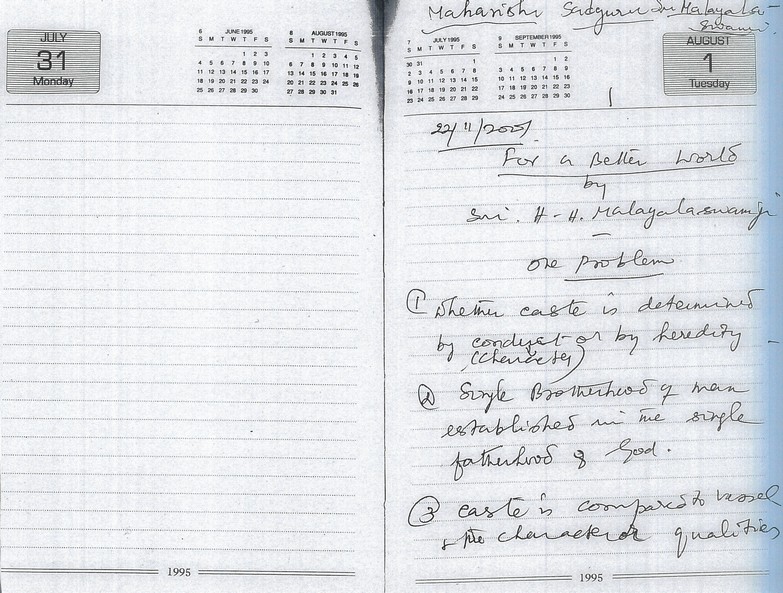 JULY
31
Monday
6 JUNE 1995
S M T W T F S
1 2 3
4 5 6 7 8 9 10
11 12 13 14 15 16 17
18 19 20 21 22 23 24
25 26 27 28 29 30
8 AUGUST 1995
S M T W T F S
1 2 3 4 5
6 7 8 9 10 11 12
13 14 15 16 17 18 19
20 21 22 23 24 25 26
27 28 29 30 31
1995
Maharishi Sadguru Sri Malayala-
Swami.
7 JULY 1995
S M T W T F S
30 31 1
2 3 4 5 6 7 8
9 10 11 12 13 14 15
16 17 18 19 20 21 22
23 24 25 26 27 28 29
9 SEPTEMBER 1995
S M T W T F S
1 2
3 4 5 6 7 8 9
10 11 12 13 14 15 16
17 18 19 20 21 22 23
24 25 26 27 28 29 30
AUGUST
1
Tuesday
1
22/11/2001
For a Better World
by
Sri. H-H. Malayalaswamiji
One Problem
① Whether caste is determined
by conduct or by heredity
(Character)
② Single Brotherhood of man
established in the single
fatherhood of God.
③ Caste is compared to vessel
& the character qualities
1995